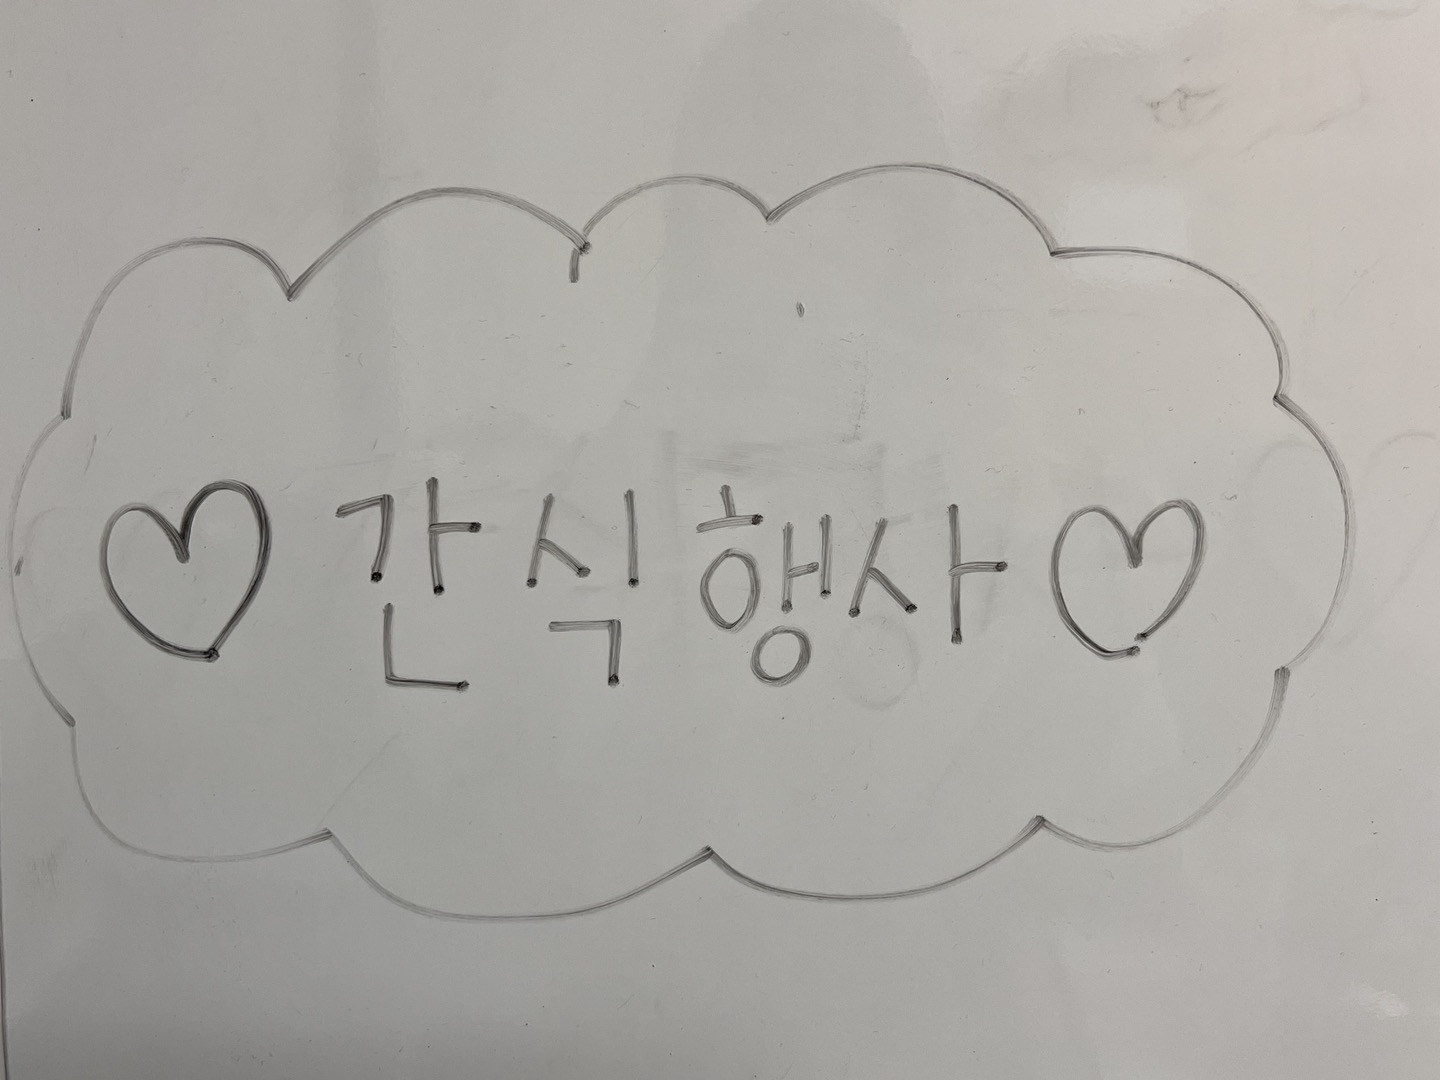 ♡ 간식행사 ♡